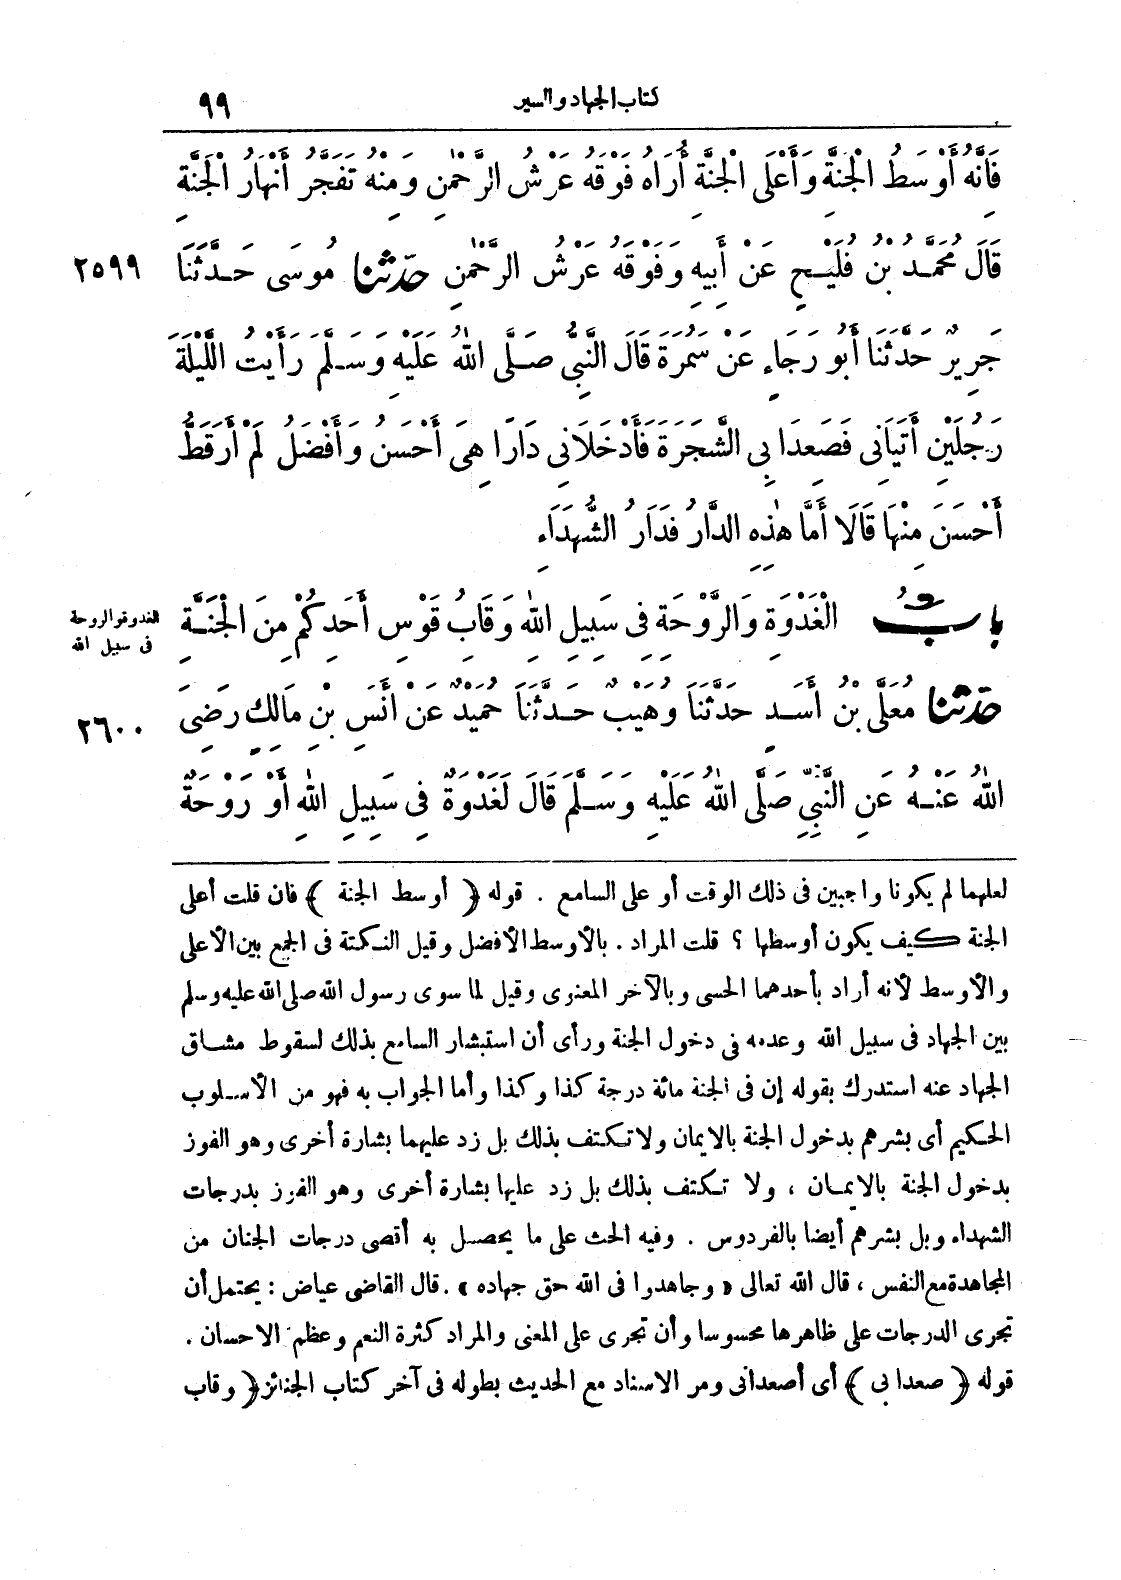 كتاب الجهاد والسير ٩٩
فَانَّهُ أَوْسَطُ الْجَنَّةِ وَأَعْلَى الْجَنَّةِ أُرَاهُ فَوْقَهُ عَرْشُ الرَّحْمٰنِ وَمِنْهُ تَفَجَّرُ أَنْهَارُ الْجَنَّةِ
قَالَ مُحَمَّدُ بْنُ فُلَيْحٍ عَنْ أَبِيهِ وَفَوْقَهُ عَرْشُ الرَّحْمٰنِ حَدَّثَنَا مُوسَى حَدَّثَنَا ٢٥٩٩
جَرِيرٌ حَدَّثَنَا أَبُو رَجَاءٍ عَنْ سَمُرَةَ قَالَ النَّبِىُّ صَلَّى اللهُ عَلَيْهِ وَسَلَّمَ رَأَيْتُ اللَّيْلَةَ
رَجُلَيْنِ أَتَيَانِى فَصَعِدَا بِى الشَّجَرَةَ فَأَدْخَلَانِى دَارًا هِىَ أَحْسَنُ وَأَفْضَلُ لَمْ أَرَ قَطُّ
أَحْسَنَ مِنْهَا قَالَا أَمَّا هٰذِهِ الدَّارُ فَدَارُ الشُّهَدَاءِ
بابُ الْغَدْوَةِ وَالرَّوْحَةِ فِى سَبِيلِ اللهِ وَقَابُ قَوْسِ أَحَدِكُمْ مِنَ الْجَنَّةِ
الغدوة والروحة
فى سبيل الله
حَدَّثَنَا مُعَلَّى بْنُ أَسَدٍ حَدَّثَنَا وُهَيْبٌ حَدَّثَنَا حُمَيْدٌ عَنْ أَنَسِ بْنِ مَالِكٍ رَضِىَ ٢٦٠٠
اللهُ عَنْهُ عَنِ النَّبِىِّ صَلَّى اللهُ عَلَيْهِ وَسَلَّمَ قَالَ لَغَدْوَةٌ فِى سَبِيلِ اللهِ أَوْ رَوْحَةٌ
لعلهما لم يكونا واجبين فى ذلك الوقت أو على السامع . قوله ﴿ أوسط الجنة ﴾ فان قلت أعلى
الجنة كيف يكون أوسطها ؟ قلت المراد . بالأوسط الأفضل وقيل النكتة فى الجمع بين الأعلى
والأوسط لأنه أراد بأحدهما الحسى وبالآخر المعنوى وقيل لما سوى رسول الله صلى الله عليه وسلم
بين الجهاد فى سبيل الله وعدمه فى دخول الجنة ورأى أن استبشار السامع بذلك لسقوط مشاق
الجهاد عنه استدرك بقوله إن فى الجنة مائة درجة كذا وكذا وأما الجواب به فهو من الأسلوب
الحكيم أى بشرهم بدخول الجنة بالايمان ولا تكتف بذلك بل زد عليهما بشارة أخرى وهو الفوز
بدخول الجنة بالايمان ، ولا تكتف بذلك بل زد عليها بشارة أخرى وهو الفوز بدرجات
الشهداء وبل بشرهم أيضا بالفردوس . وفيه الحث على ما يحصل به أقصى درجات الجنان من
المجاهدة مع النفس ، قال الله تعالى « وجاهدوا فى الله حق جهاده » . قال القاضى عياض : يحتمل أن
تجرى الدرجات على ظاهرها محسوسا وأن تجرى على المعنى والمراد كثرة النعم وعظم الاحسان .
قوله ﴿ صعدا بى ﴾ أى أصعدانى ومر الاسناد مع الحديث بطوله فى آخر كتاب الجنائز ﴿ وقاب